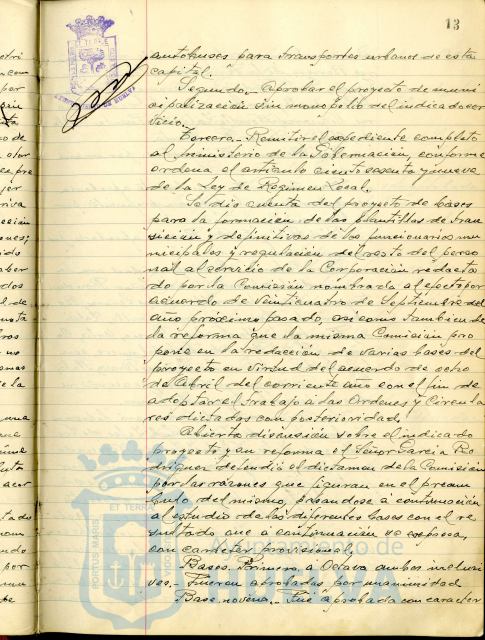 13
autobuses para transportes urbanos de esta
capital.
Segundo.- Aprobar el proyecto de muni
cipalización sin monopolio del indicado ser
vicio.
Tercero.- Remitir el expediente completo
al Ministerio de la Gobernación, conforme
ordena el artículo ciento sesenta y nueve
de la Ley de Régimen Local.
Se dió cuenta del proyecto de bases
para la formación de las plantillas de tran
sición y definitivas de los funcionarios mu
nicipales y regulación del resto del perso
nal al servicio de la Corporación redacta
do por la Comisión nombrada al efecto por
acuerdo de veinticuatro de Septiembre del
año próximo pasado, así como tambien de
la reforma que la misma Comisión pro
pone en la redacción de varias bases del
proyecto en virtud del acuerdo de ocho
de Abril del corriente año con el fin de
adaptar el trabajo a las Ordenes y Circula
res dictadas con posterioridad.
Abierta discusión sobre el indicado
proyecto y su reforma el Señor García Ro
dríguez defendió el dictamen de la Comisión
por las razones que figuran en el preám
bulo del mismo, pasandose a continuación
al estudio de las diferentes bases con el re
sultado que a continuación se expresa,
con carácter provisional.
Bases Primera a Octava ambas inclusi
ves.- Fueron aprobadas por unanimidad
Base novena.- Fué aprobada con caracter
Ayuntamiento de
HUELVA
PORTUS MARIS
ET TERRAE